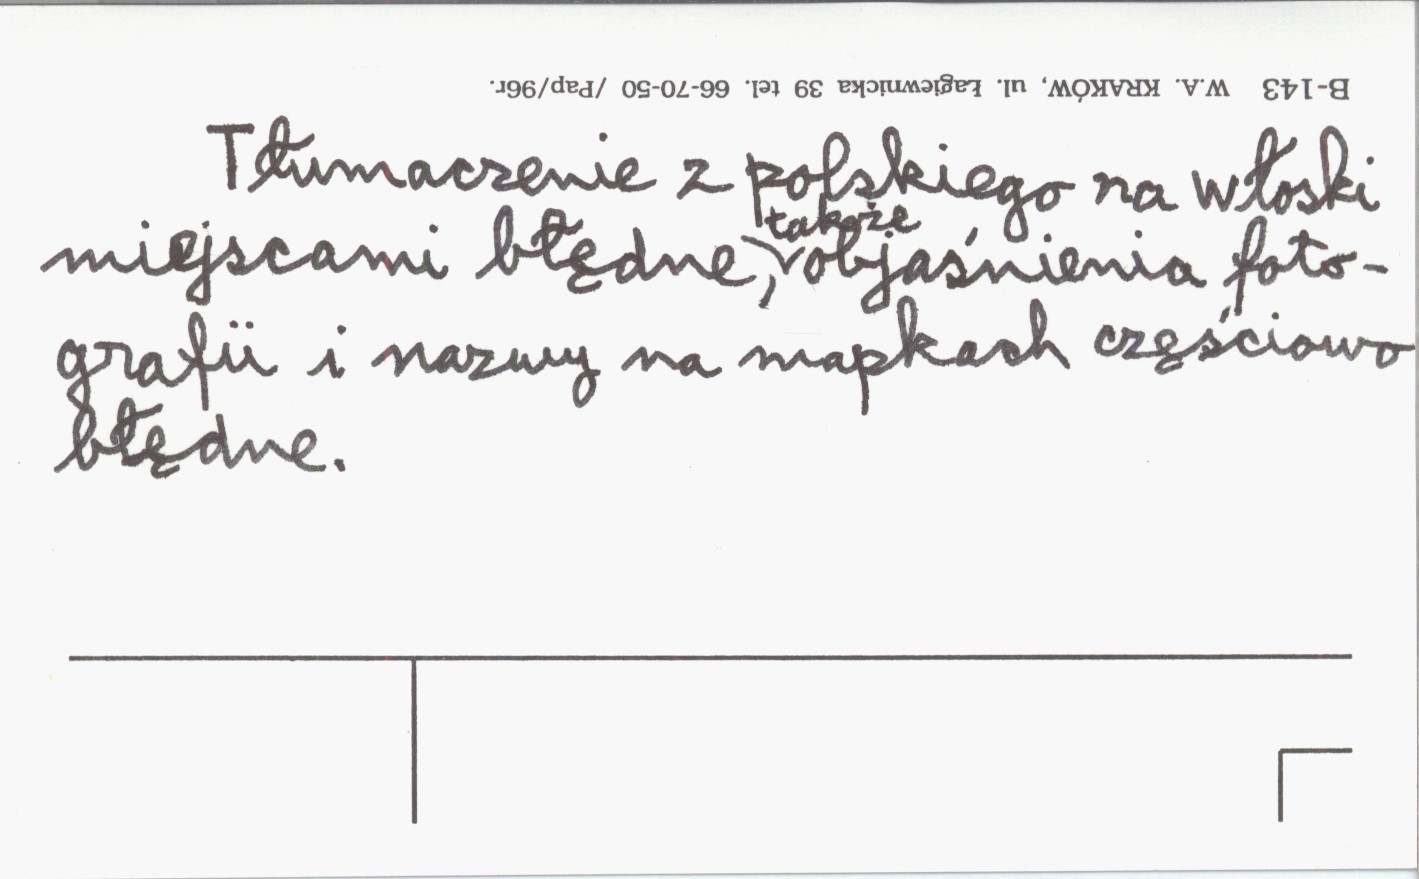 B-143 W.A. KRAKÓW, ul. Łagiewnicka 39 tel. 66-70-50 /Pap/96r.
Tłumaczenie z polskiego na włoski
miejscami błędne, także objaśnienia foto-
grafii i nazwy na mapkach częściowo
błędne.